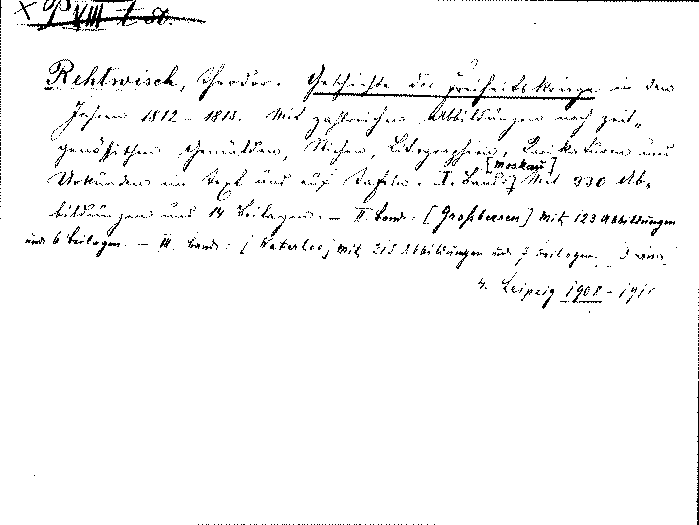 VIII
Rehtwisch, Theodor. Geschichte der Freiheitskriege in den
Jahren 1812 - 1815. Mit zahlreichen Abbildungen nach zeit-
genössischen Gemälden, Stichen, Litographien, Karikaturen und
Urkunden im Text und auf Tafeln. I. Band: [Moskau] Mit 330 Ab-
bildungen und 14 Beilagen. - II. Band: [Grossbeeren] Mit 123 Abbildungen
und 6 Beilagen. - III. Band: [Waterloo] Mit Abbildungen und 7 Beilagen.
4. Leipzig 1908 -